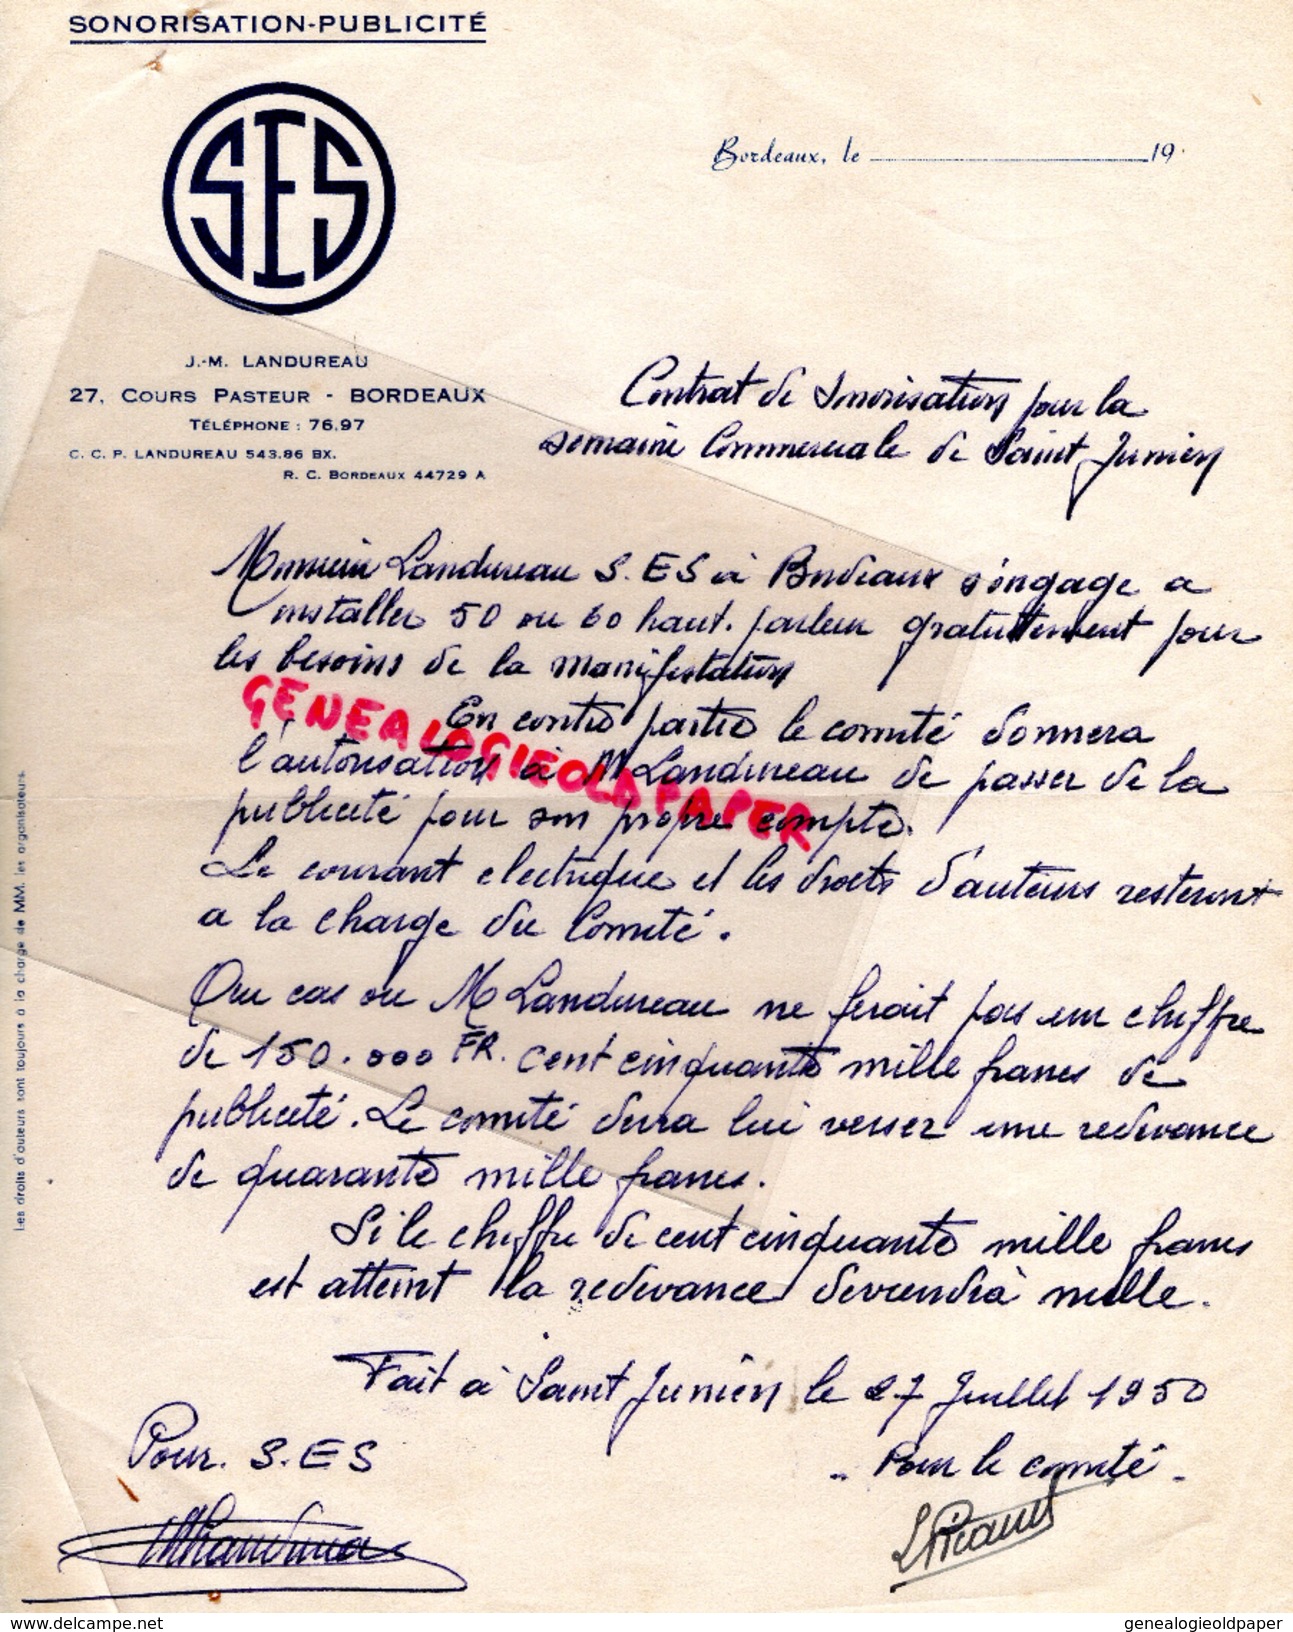 SONORISATION-PUBLICITÉ
SES
Bordeaux, le 19
J.-M. LANDUREAU
27, COURS PASTEUR - BORDEAUX
TÉLÉPHONE : 76.97
C. C. P. LANDUREAU 543.86 BX.
R. C. BORDEAUX 44729 A
Contrat de Sonorisation pour la
semaine Commerciale de Saint Junien
Monsieur Landureau S.ES à Bordeaux s'engage a
installer 50 ou 60 haut. parleur gratuitement pour
les besoins de la manifestation
En contre partie le comité donnera
l'autorisation à M Landureau de passer de la
publicité pour son propre compte.
Le courant electrique et les droits d'auteurs resteront
a la charge du Comité.
Au cas ou M Landureau ne ferait pas un chiffre
de 150.000 FR. cent cinquante mille francs de
publicité. Le comité devra lui verser une redevance
de quarante mille francs.
Si le chiffre de cent cinquante mille francs
est atteint la redevance deviendra nulle.
Fait à Saint Junien le 27 Juillet 1950
Pour. S.ES
- Pour le comité -
GENEALOGIEOLDPAPER
Les droits d'auteurs sont toujours à la charge de MM. les organisateurs.
www.delcampe.net
genealogieoldpaper